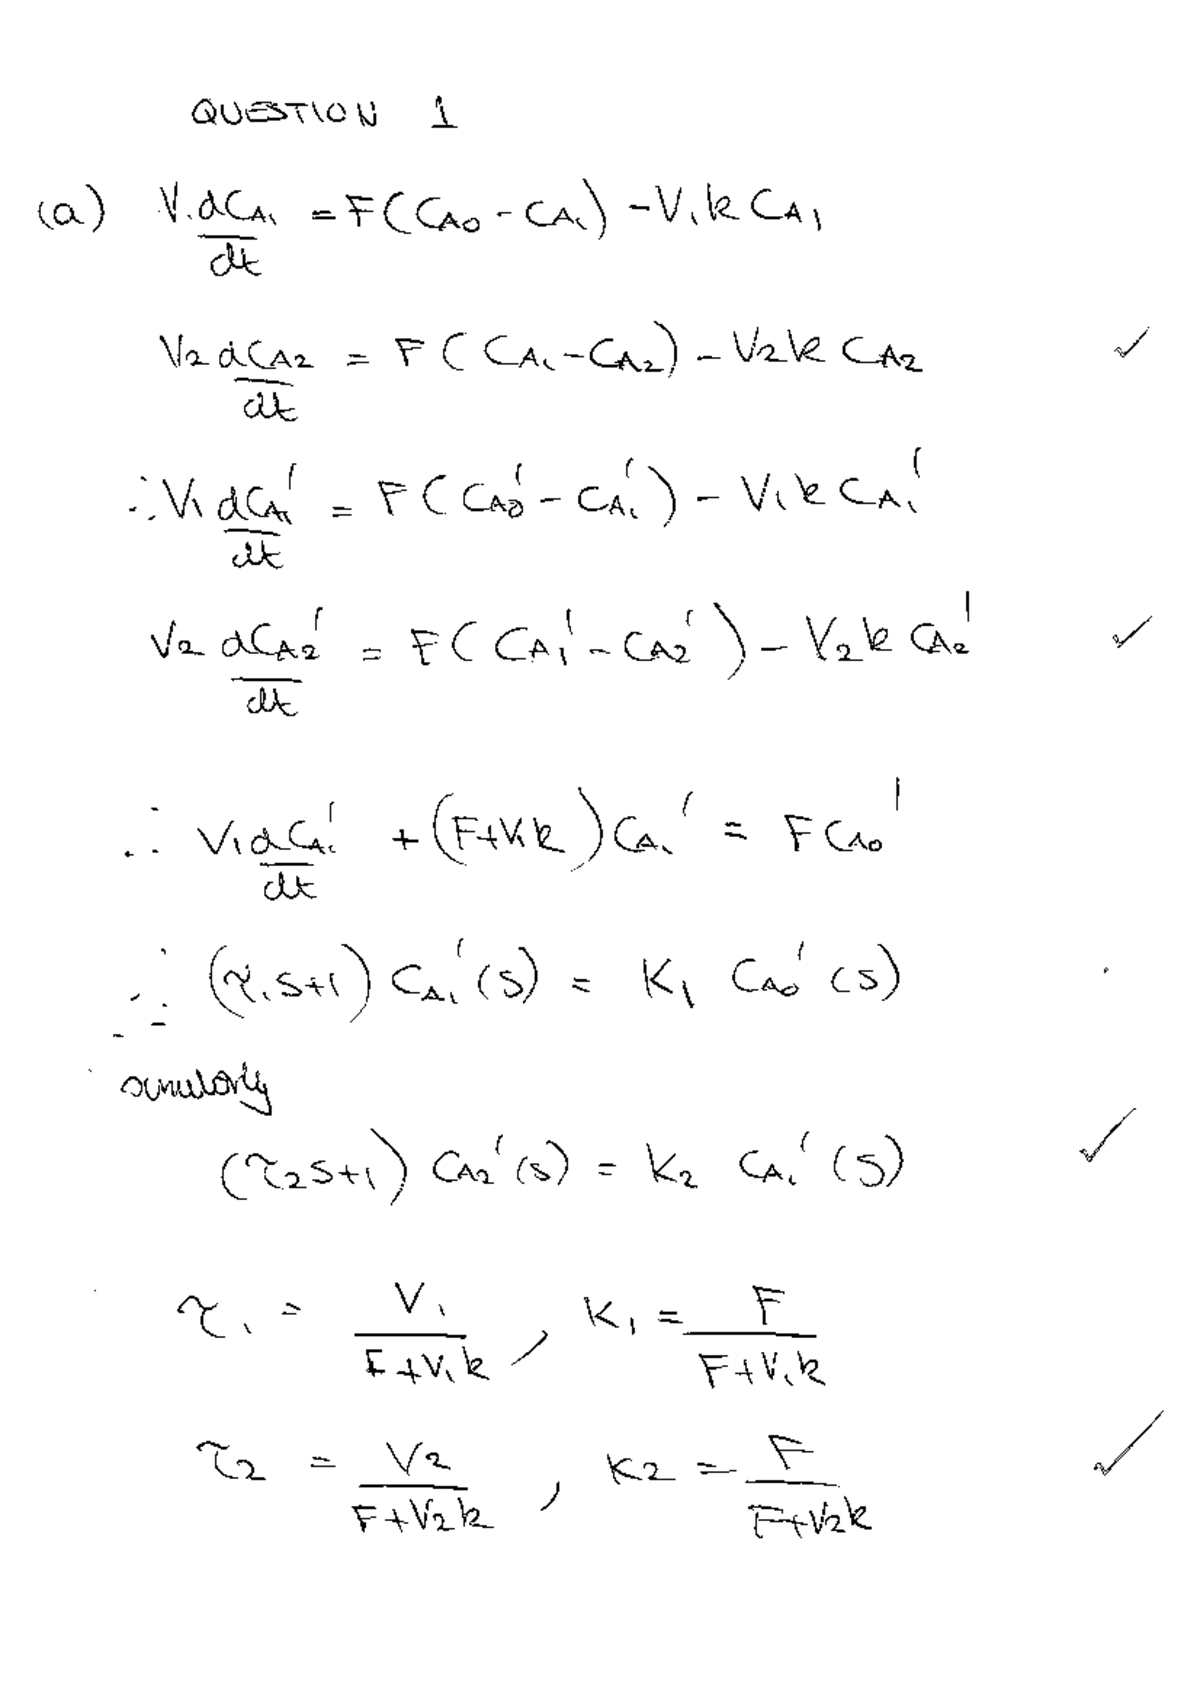 QUESTION 1
(a) V₁dCA₁/dt = F(CA₀ - CA₁) - V₁kCA₁
V₂dCA₂/dt = F(CA₁ - CA₂) - V₂kCA₂ ✓
∴ V₁dCA₁'/dt = F(CA₀' - CA₁') - V₁kCA₁'
V₂dCA₂'/dt = F(CA₁' - CA₂') - V₂kCA₂' ✓
∴ V₁dCA₁'/dt + (F+V₁k)CA₁' = FCA₀'
∴ (τ₁s+1) CA₁'(s) = K₁ CA₀'(s)
similarly
(τ₂s+1) CA₂'(s) = K₂ CA₁'(s) ✓
τ₁ = V₁/(F+V₁k) , K₁ = F/(F+V₁k)
τ₂ = V₂/(F+V₂k) , K₂ = F/(F+V₂k) ✓